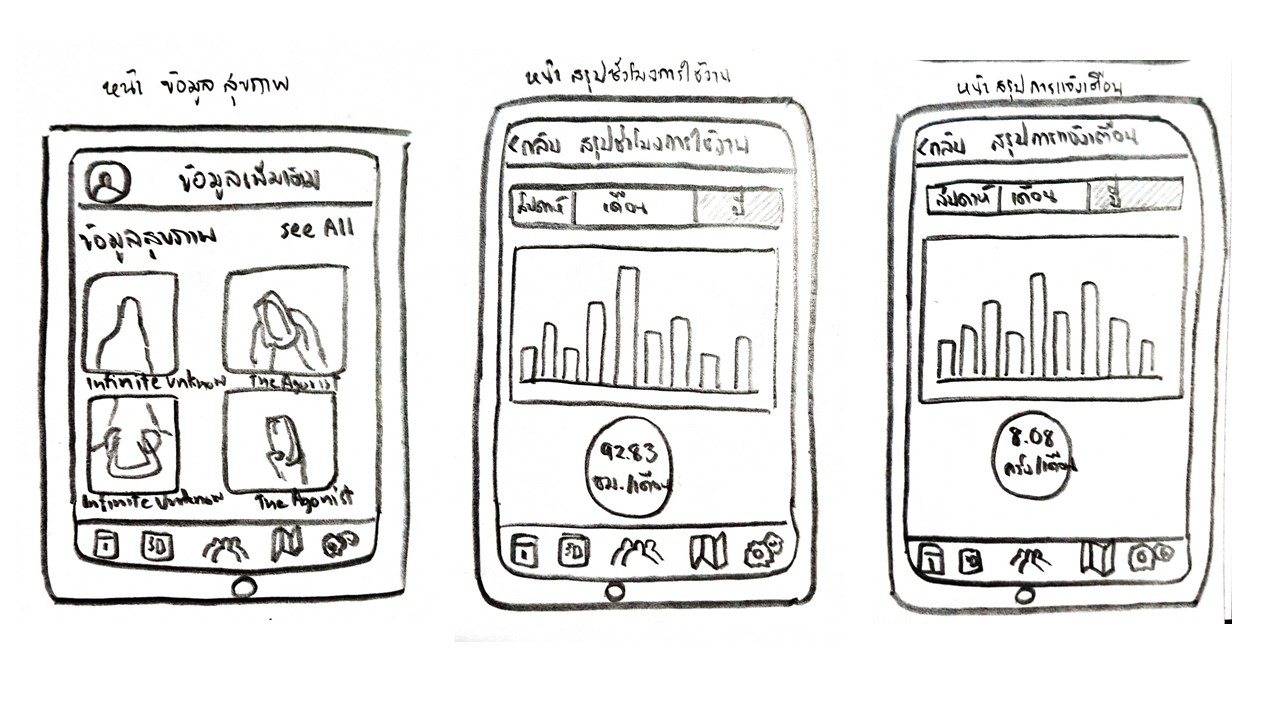 หน้า ข้อมูล สุขภาพ
ข้อมูลเพิ่มเติม
ข้อมูลสุขภาพ see All
Infinite Unknow The Agonist
Infinite Unknow The Agonist
3D
หน้า สรุปชั่วโมงการใช้งาน
<กลับ สรุปชั่วโมงการใช้งาน
สัปดาห์ เดือน ปี
92.83
ชม./เดือน
3D
หน้า สรุป การแจ้งเตือน
<กลับ สรุปการแจ้งเตือน
สัปดาห์ เดือน ปี
8.08
ครั้ง/เดือน